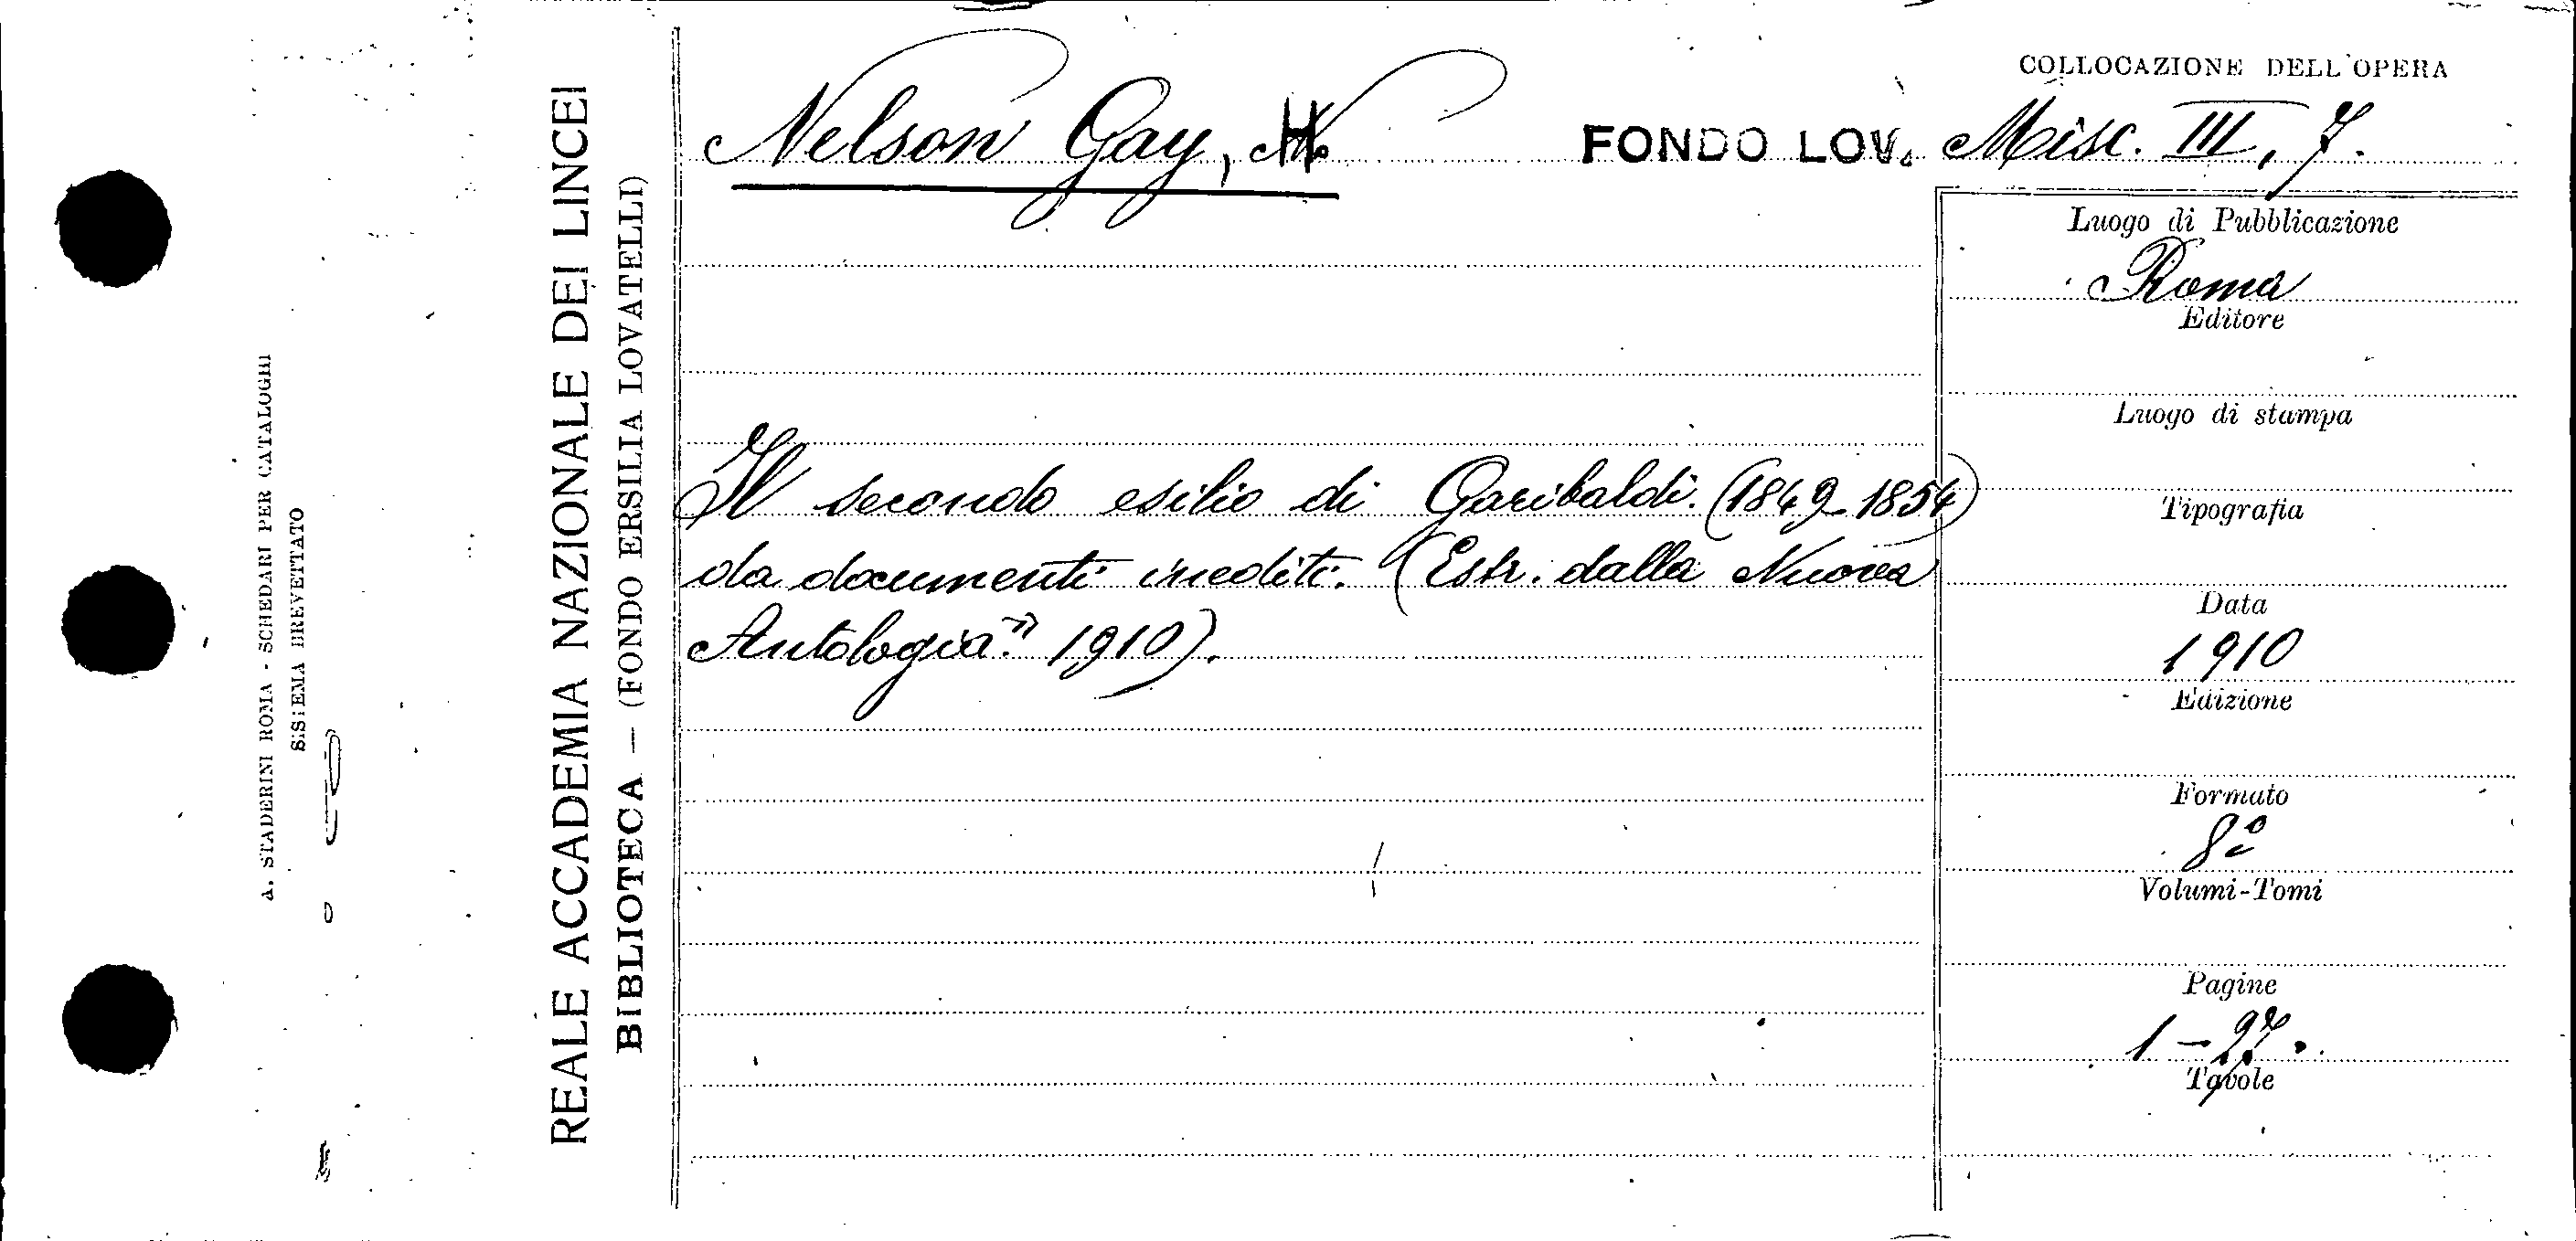 A. STADERINI ROMA - SCHEDARI PER CATALOGHI
SISTEMA BREVETTATO
REALE ACCADEMIA NAZIONALE DEI LINCEI
BIBLIOTECA — (FONDO ERSILIA LOVATELLI)
Nelson Gay, H.
FONDO LOV.
COLLOCAZIONE DELL'OPERA
Misc. III, 7.
Il secondo esilio di Garibaldi. (1849-1854)
da documenti inediti. (Estr. dalla Nuova
Antologia" 1910).
Luogo di Pubblicazione
Roma
Editore
Luogo di stampa
Tipografia
Data
1910
Edizione
Formato
8º
Volumi-Tomi
Pagine
1 - 27.
Tavole